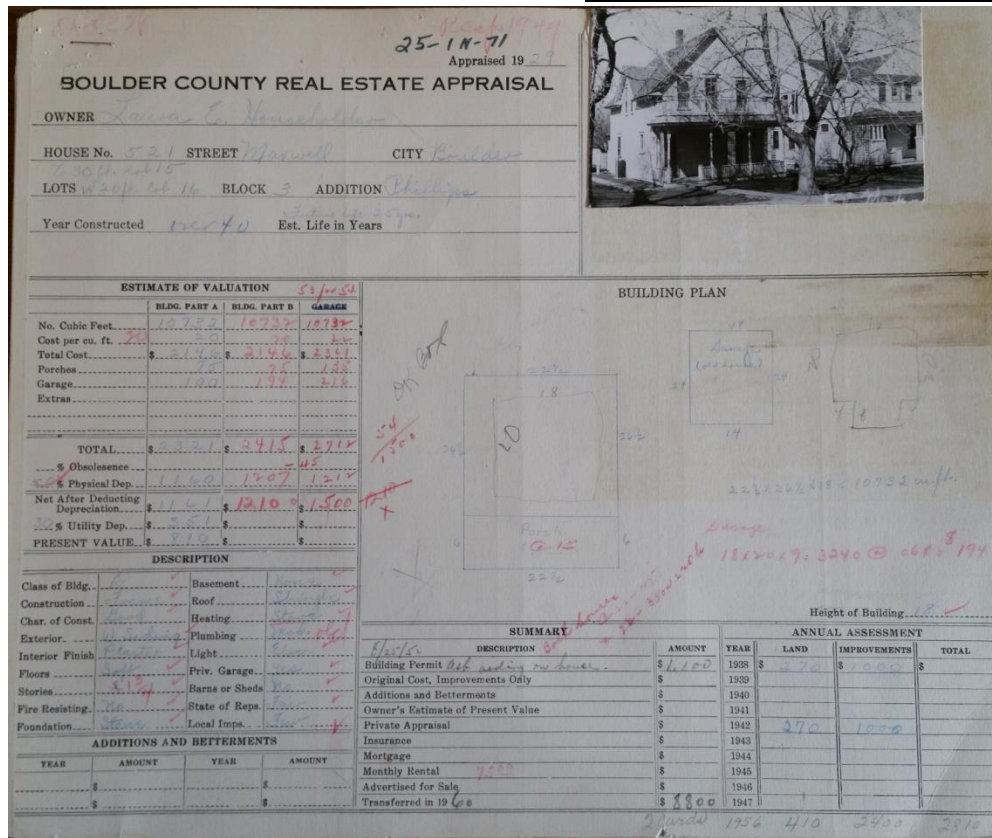 25-1N-71
Appraised 1929
BOULDER COUNTY REAL ESTATE APPRAISAL
OWNER Laura E. Householder
HOUSE No. 521 STREET Maxwell CITY Boulder
E 30 ft. lot 15
LOTS W 20 ft. lot 16 BLOCK 3 ADDITION Phillips
Year Constructed over 40 Est. Life in Years
ESTIMATE OF VALUATION
BLDG. PART A BLDG. PART B GARAGE
No. Cubic Feet 10732 10732 10732
Cost per cu. ft. 20 20 22
Total Cost $ 2146 $ 2146 $ 2361
Porches 75 75 135
Garage 100 194 216
Extras
TOTAL $ 2321 $ 2415 $ 2712
% Obsolesence
50 % Physical Dep. 1160 1207 1212
Net After Deducting
Depreciation $ 1161 $ 1210 $ 1500
30 % Utility Dep. $ 351 $ $
PRESENT VALUE $ 810 $ $
DESCRIPTION
Class of Bldg. Basement None
Construction Frame Roof Shingle
Char. of Const. Heating Stove
Exterior W. Siding Plumbing
Interior Finish Plaster Light Elec.
Floors Soft Priv. Garage Yes
Stories 1 3/4 Barns or Sheds No
Fire Resisting No State of Reps. Fair
Foundation Stone Local Imps.
ADDITIONS AND BETTERMENTS
YEAR AMOUNT YEAR AMOUNT
$ $
$ $
BUILDING PLAN
18
20
Garage
(old house)
24 24
14
Porch
6 6
22½
22½ x 26½ x 18 = 10732 cu. ft.
Garage
18 x 20 x 9 = 3240 @ 06¢ = $194
Height of Building 18
SUMMARY
8/25/52 DESCRIPTION AMOUNT
Building Permit Asb siding on house. $ 1,100
Original Cost, Improvements Only $
Additions and Betterments $
Owner's Estimate of Present Value $
Private Appraisal $
Insurance $
Mortgage $
Monthly Rental $
Advertised for Sale $
Transferred in 1960 $ 8800
ANNUAL ASSESSMENT
YEAR LAND IMPROVEMENTS TOTAL
1938 $ 270 $ 1000 $
1939
1940
1941
1942 270 1000
1943
1944
1945
1946
1947
2 Cards 1956 410 2400 2810